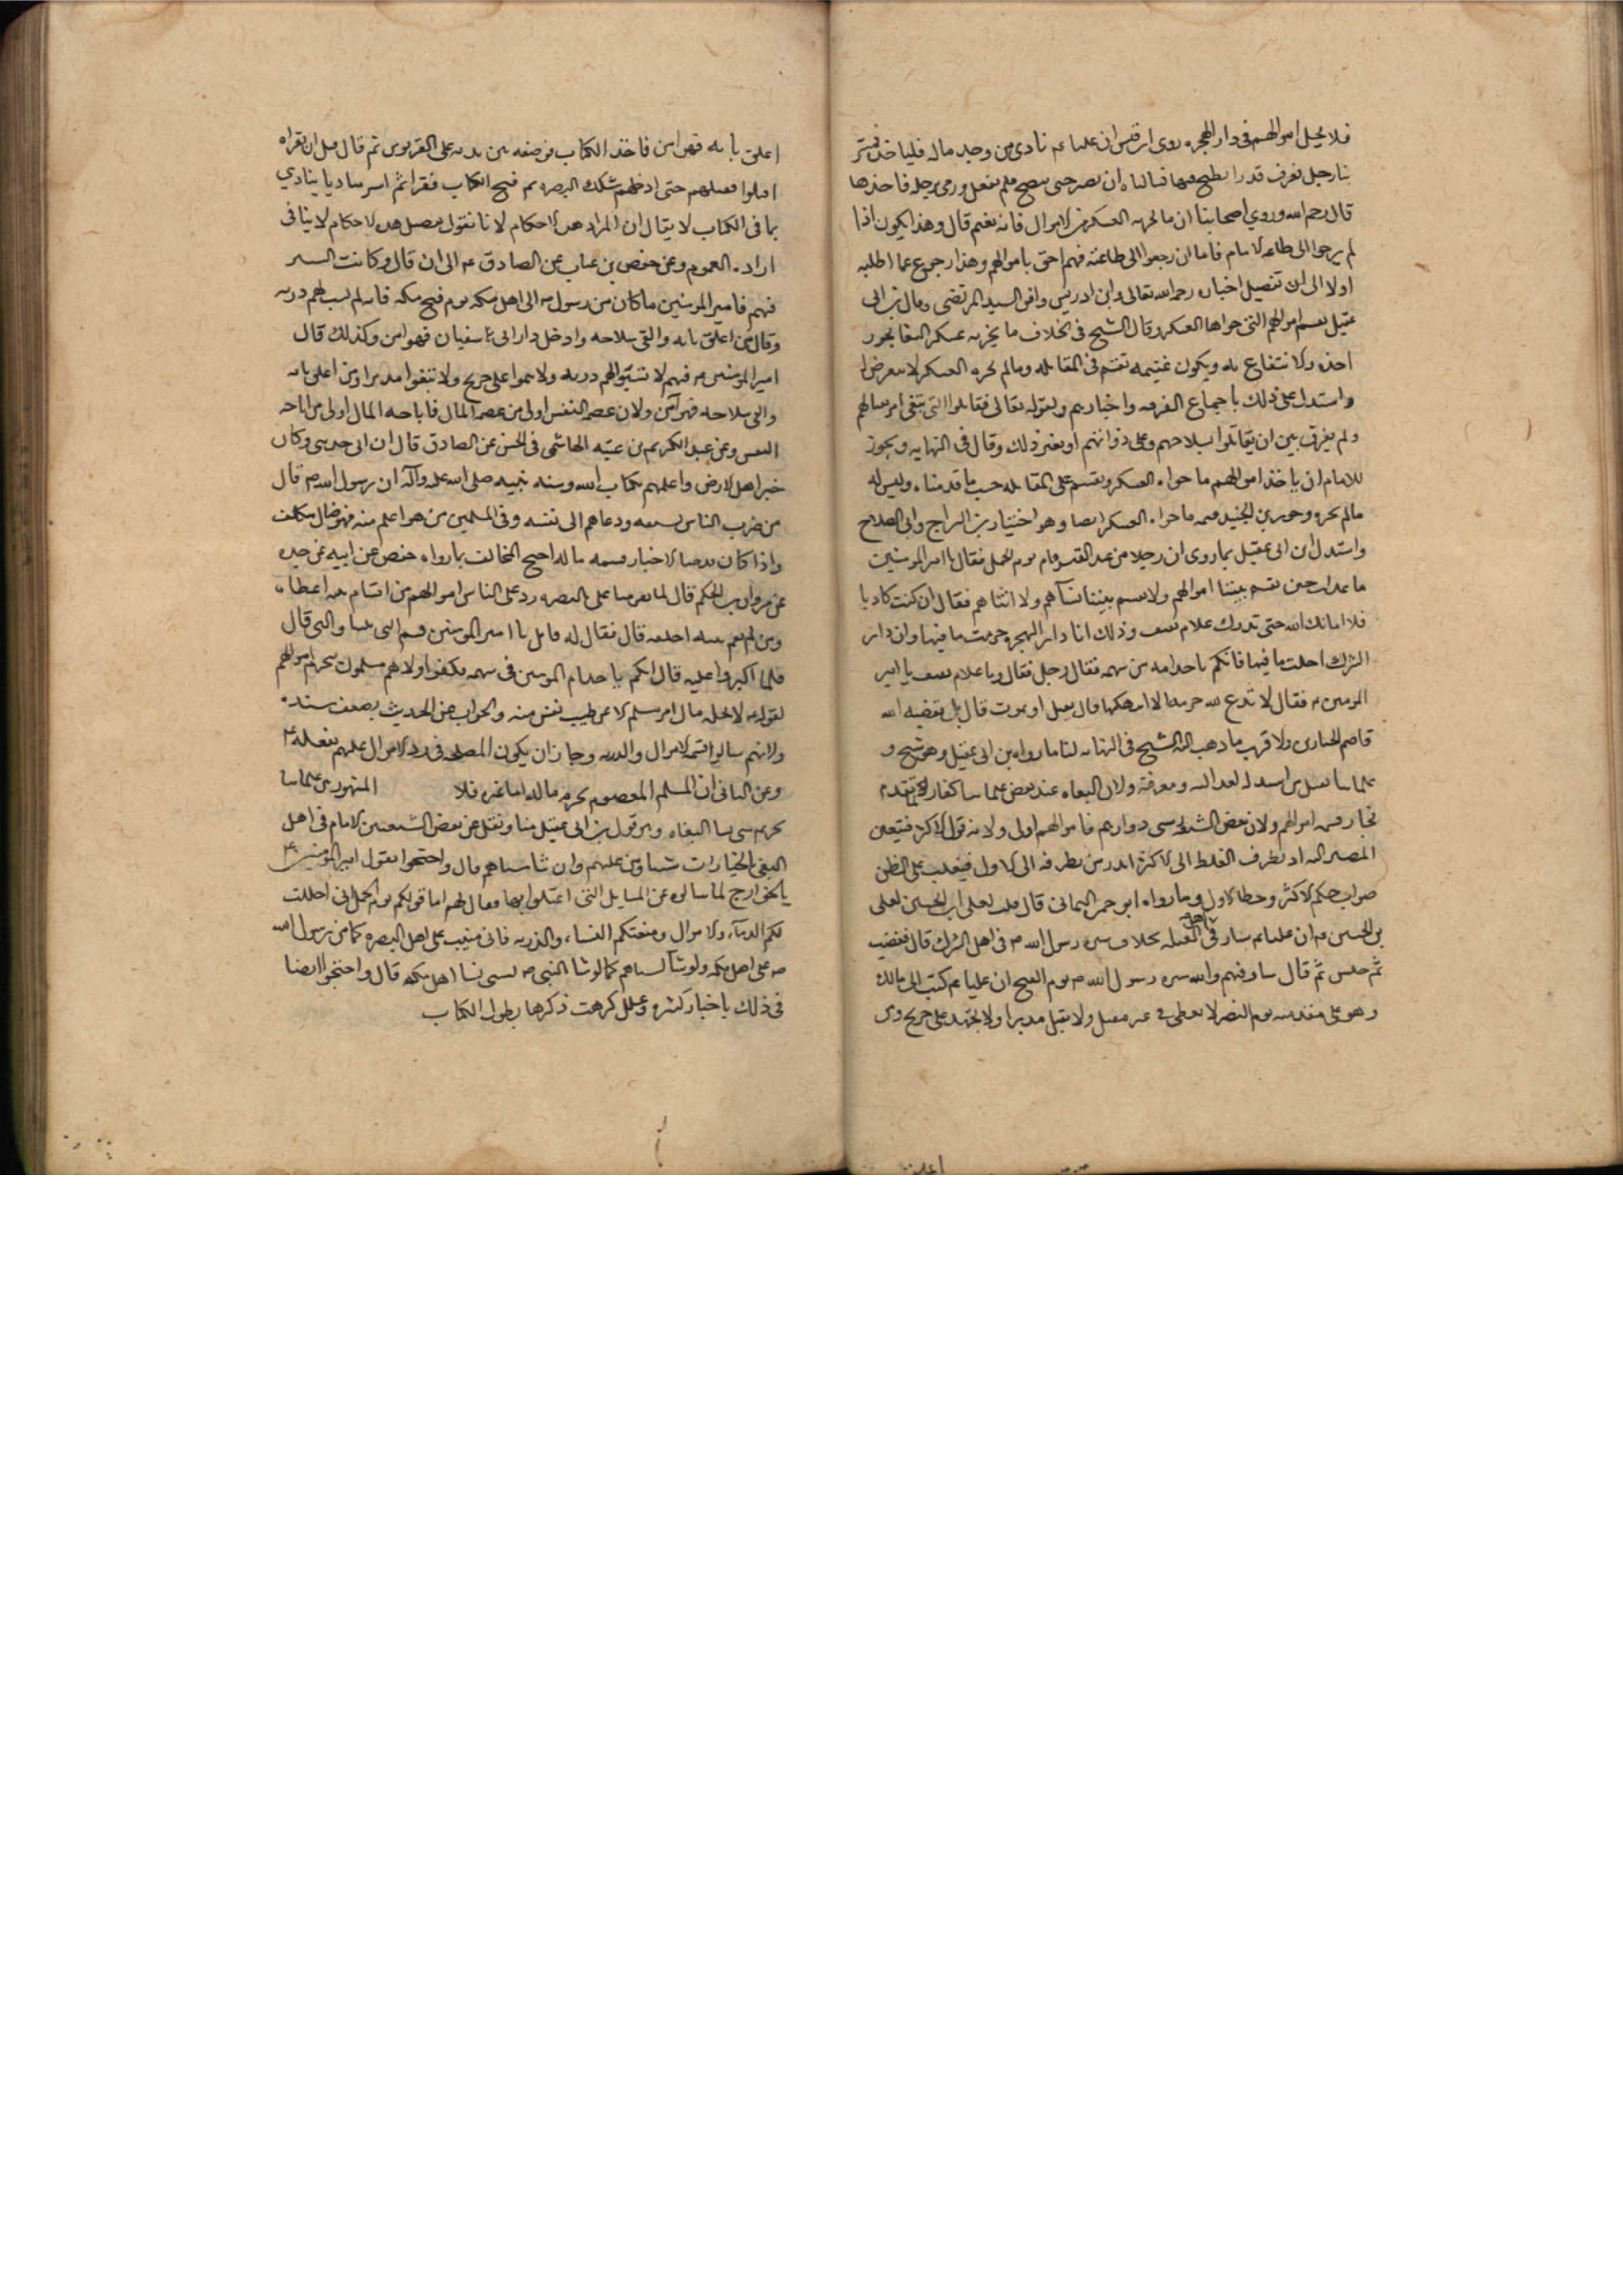 فلا يحل اموالهم فى دار الهجره روى ان عليا عم نادى من وجد ماله فلياخذه فمر
بنا رجل فعرف قدرا نطبخ فيها فسالناه ان يصبر حتى ينضج فلم يفعل ورمى برجله فاخذها
قال رحمه الله وروي اصحابنا ان ما يحويه العسكر من الاموال فانه يغنم قال وهذا يكون اذا
لم يرجعوا الى طاعه الامام فاما ان رجعوا الى طاعته فهم احق باموالهم وهذا رجوع عما اطلقه
اولا الى ان تفصيل اختاره رحمه الله تعالى وابن ادريس وافق السيد المرتضى وقال بن ابى
عقيل يقسم اموالهم التى حواها العسكر وقال الشيخ فى الخلاف ما يحويه عسكر البغاه يجوز
اخذه والانتفاع به ويكون غنيمه تقسم فى المقاتله وما لم يحوه العسكر لا يتعرض له
واستدل على ذلك باجماع الفرقه واخبارهم وبقوله تعالى فقاتلوا التى تبغى امر بقتالهم
ولم يفرق بين ان يقاتلوا بسلاحهم وعلى دوابهم او بغير ذلك وقال فى النهايه ويجوز
للامام ان ياخذ اموالهم ما حواه العسكر ويقسم على المقاتله حسب ما قدمناه وليس له
ما لم يحوه وجوز بن الجنيد قسمه ما حواه العسكر ايضا وهو اختيار بن البراج وابى الصلاح
واستدل ابن ابى عقيل بما روى ان رجلا من عبد القيس قام يوم الجمل فقال يا امير المومنين
ما عدلت حين تقسم بيننا اموالهم ولا تقسم بيننا نسآهم ولا ابناهم فقال ان كنت كاذبا
فلا اماتك الله حتى تدرك غلام ثقيف وذلك ان دار الهجره حرمت ما فيها وان دار
الشرك احلت ما فيها فايكم ياخذ امه من سهمه فقال رجل فقال وما غلام ثقيف يا امير
المومنين م فقال لا تدع لله حرمه الا انتهكها قال يقتل او يموت قال بل يقصمه الله
قاصم الجبارين والاقرب ما ذهب اليه الشيخ فى النهايه لنا ما رواه بن ابى عقيل وهو شيخ و
علماينا تقبل مراسيله لعدالته ومعرفته ولان البغاه عند بعض علماينا كفار لما تقدم
فجاز قسمه اموالهم ولان بعض الشيعه سبى ذراريهم فاموالهم اولى ولانه قول الاكثر فيتعين
المصير اليه اذ تطرف الغلط الى الاكثر اندر من تطرفه الى الاول فيغلب على الظن
صواب حكم الاكثر وخطاء الاول وما رواه ابو حمزه اليمانى قال قلت لعلى بن الحسين لعلى
بن الحسين عم ان عليا عم سار فى اهل القبله بخلاف سيره رسول الله ص فى اهل الشرك قال فغضب
ثم جلس ثم قال سار فيهم والله سيره رسول الله ص يوم الفتح ان عليا عم كتب الى مالك
وهو على مقدمته يوم البصره لا يطعن فى غير مقبل ولا يقتل مدبرا ولا يجهز على جريح ومن
اغلق بابه فهو امن فاخذ الكتاب فوضعه بين يديه على القربوس ثم قال قبل ان يقراه
اقتلوا فقتلهم حتى ادخلهم سكك البصره ثم فتح الكتاب فقرا ثم امر مناديا ينادي
بما فى الكتاب لا يقال ان المراد هذه الاحكام لانا نقول تفصيل هذه الاحكام لا ينافى
اراده العموم وعن حفص بن غياث عن الصادق عم الى ان قال وكانت السيره
فيهم من امير المومنين ما كان من رسول ص الى اهل مكه يوم فتح مكه فانه لم يسب لهم ذريه
وقال من اغلق بابه والقى سلاحه وادخل دار ابى سفيان فهو امن وكذلك قال
امير المومنين م فيهم لا تسبوا لهم ذريه ولا تتموا على جريح ولا تتبعوا مدبرا ومن اغلق بابه
والقى سلاحه فهو آمن ولان عصمه النفس اولى من عصمه المال فاباحه المال اولى من اباحه
النفس وعن عبد الكريم بن عتبه الهاشمى فى الحسن عن الصادق قال ان ابى حدثنى وكان
خير اهل الارض واعلمهم بكتاب الله وسنه نبيه صلى الله عليه وآله ان رسول الله ص قال
من ضرب الناس بسيفه ودعاهم الى نفسه وفى المسلمين من هو اعلم منه فهو ضال متكلف
واذا كان ضالا جاز قسمه ماله احتج المخالف بما رواه حفص عن ابيه عن جده
عن مروان بن الحكم قال لما هزمنا على بالبصره رد على الناس اموالهم من اقام بينه اعطاه
ومن لم يقم بينه احلفه قال فقال له قايل يا امير المومنين قسم الفى بيننا والسبى قال
فلما اكثروا عليه قال ايكم ياخذ ام المومنين فى سهمه فكفوا ولانهم مسلمون تحرم اموالهم
لقوله م لا يحل مال امرء مسلم الا عن طيب نفس منه والجواب عن الحديث بضعف سنده
ولانهم سالوا قسمه الاموال والذريه وجاز ان يكون المصلحه فى رد الاموال عليهم بفعله م
وعن الثانى ان المسلم المعصوم يحرم ماله اما غيره فلا المشهور بين علماينا
تحريم سبى نسا البغاه وهو قول بن ابى عقيل منا ونقل عن بعض الشيعه ان الامام فى اهل
البغى بالخيار ان شا من عليهم وان شا سباهم قال واحتجوا بقول امير المومنين م
للخوارج لما سالوه عن المسايل التى اعتلوا بها فقال لهم اما قولكم يوم الجمل انى احللت
لكم الدمآء والاموال ومنعتكم النساء والذريه فانى مننت على اهل البصره كما من رسول الله
ص على اهل مكه ولو شآء لسباهم كما لو شا النبى ص لسبى نسا اهل مكه قال واحتجوا ايضا
فى ذلك باخبار كثيره وعلل كرهت ذكرها يطول الكتاب